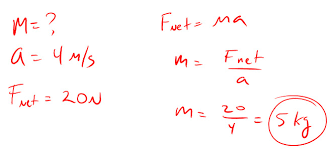 m = ?
a = 4 m/s
Fnet = 20N
Fnet = ma
m = Fnet/a
m = 20/4 = 5 kg